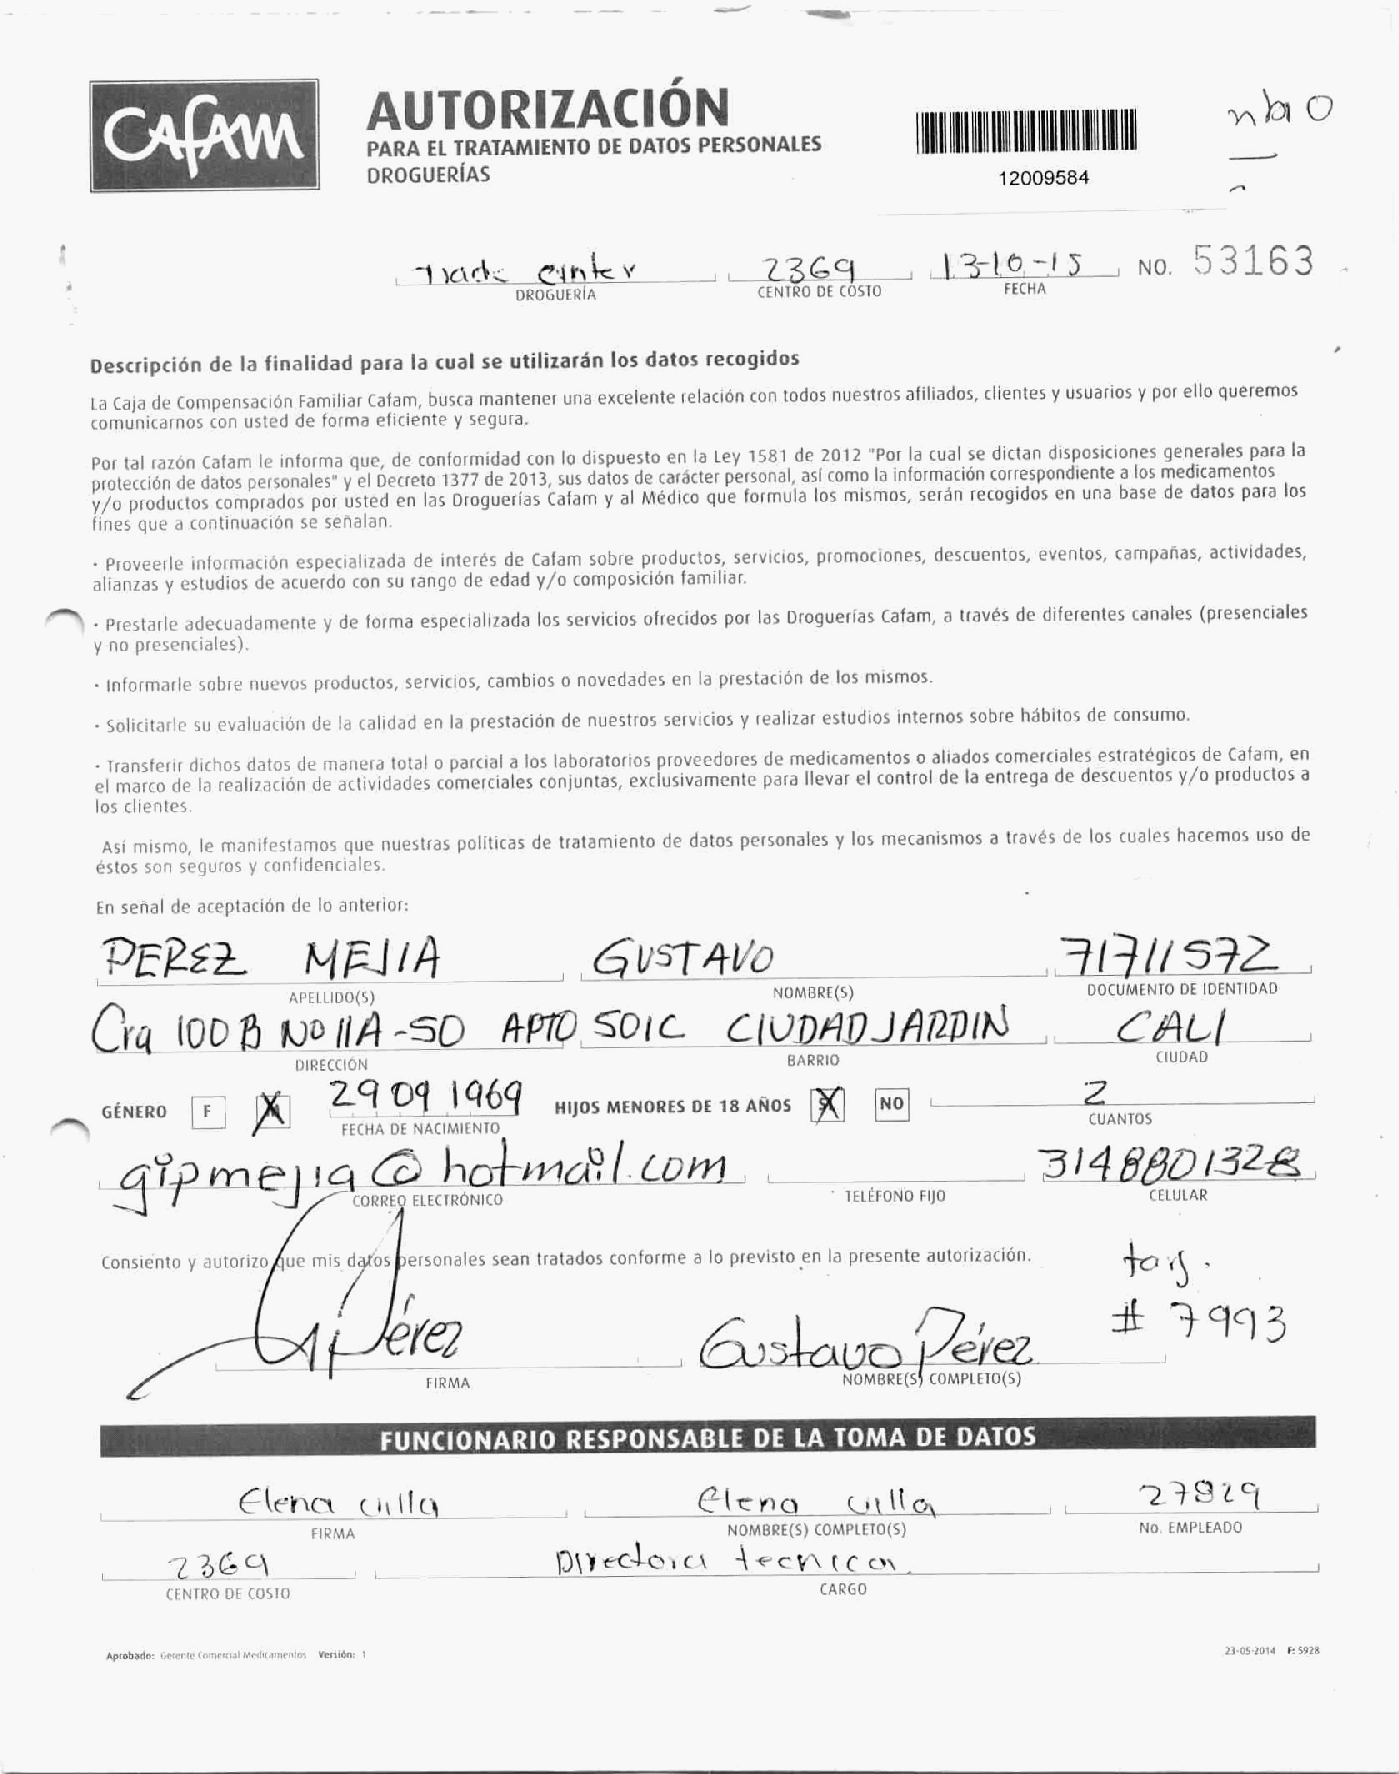 Cafam
AUTORIZACIÓN
PARA EL TRATAMIENTO DE DATOS PERSONALES
DROGUERÍAS
12009584
Trade Center 2369 13-10-15 NO. 53163
DROGUERÍA CENTRO DE COSTO FECHA
Descripción de la finalidad para la cual se utilizarán los datos recogidos
La Caja de Compensación Familiar Cafam, busca mantener una excelente relación con todos nuestros afiliados, clientes y usuarios y por ello queremos
comunicarnos con usted de forma eficiente y segura.
Por tal razón Cafam le informa que, de conformidad con lo dispuesto en la Ley 1581 de 2012 "Por la cual se dictan disposiciones generales para la
protección de datos personales" y el Decreto 1377 de 2013, sus datos de carácter personal, así como la información correspondiente a los medicamentos
y/o productos comprados por usted en las Droguerías Cafam y al Médico que formula los mismos, serán recogidos en una base de datos para los
fines que a continuación se señalan.
· Proveerle información especializada de interés de Cafam sobre productos, servicios, promociones, descuentos, eventos, campañas, actividades,
alianzas y estudios de acuerdo con su rango de edad y/o composición familiar.
· Prestarle adecuadamente y de forma especializada los servicios ofrecidos por las Droguerías Cafam, a través de diferentes canales (presenciales
y no presenciales).
· Informarle sobre nuevos productos, servicios, cambios o novedades en la prestación de los mismos.
· Solicitarle su evaluación de la calidad en la prestación de nuestros servicios y realizar estudios internos sobre hábitos de consumo.
· Transferir dichos datos de manera total o parcial a los laboratorios proveedores de medicamentos o aliados comerciales estratégicos de Cafam, en
el marco de la realización de actividades comerciales conjuntas, exclusivamente para llevar el control de la entrega de descuentos y/o productos a
los clientes.
Así mismo, le manifestamos que nuestras políticas de tratamiento de datos personales y los mecanismos a través de los cuales hacemos uso de
éstos son seguros y confidenciales.
En señal de aceptación de lo anterior:
PEREZ MEJIA GUSTAVO 71711572
APELLIDO(S) NOMBRE(S) DOCUMENTO DE IDENTIDAD
Cra 100B NO 11A-50 APTO 501C CIUDAD JARDIN CALI
DIRECCIÓN BARRIO CIUDAD
GÉNERO F X 29 09 1969 HIJOS MENORES DE 18 AÑOS X NO 2
FECHA DE NACIMIENTO CUANTOS
gipmejia@hotmail.com 3148801328
CORREO ELECTRÓNICO TELÉFONO FIJO CELULAR
Consiento y autorizo que mis datos personales sean tratados conforme a lo previsto en la presente autorización.
tarj.
# 7993
Pérez Gustavo Pérez
FIRMA NOMBRE(S) COMPLETO(S)
FUNCIONARIO RESPONSABLE DE LA TOMA DE DATOS
Elena Villa Elena Villa 27829
FIRMA NOMBRE(S) COMPLETO(S) No. EMPLEADO
2369 Directora tecnica
CENTRO DE COSTO CARGO
Aprobado: Gerente Comercial Medicamentos Versión: 1 23-05-2014 F: 5928